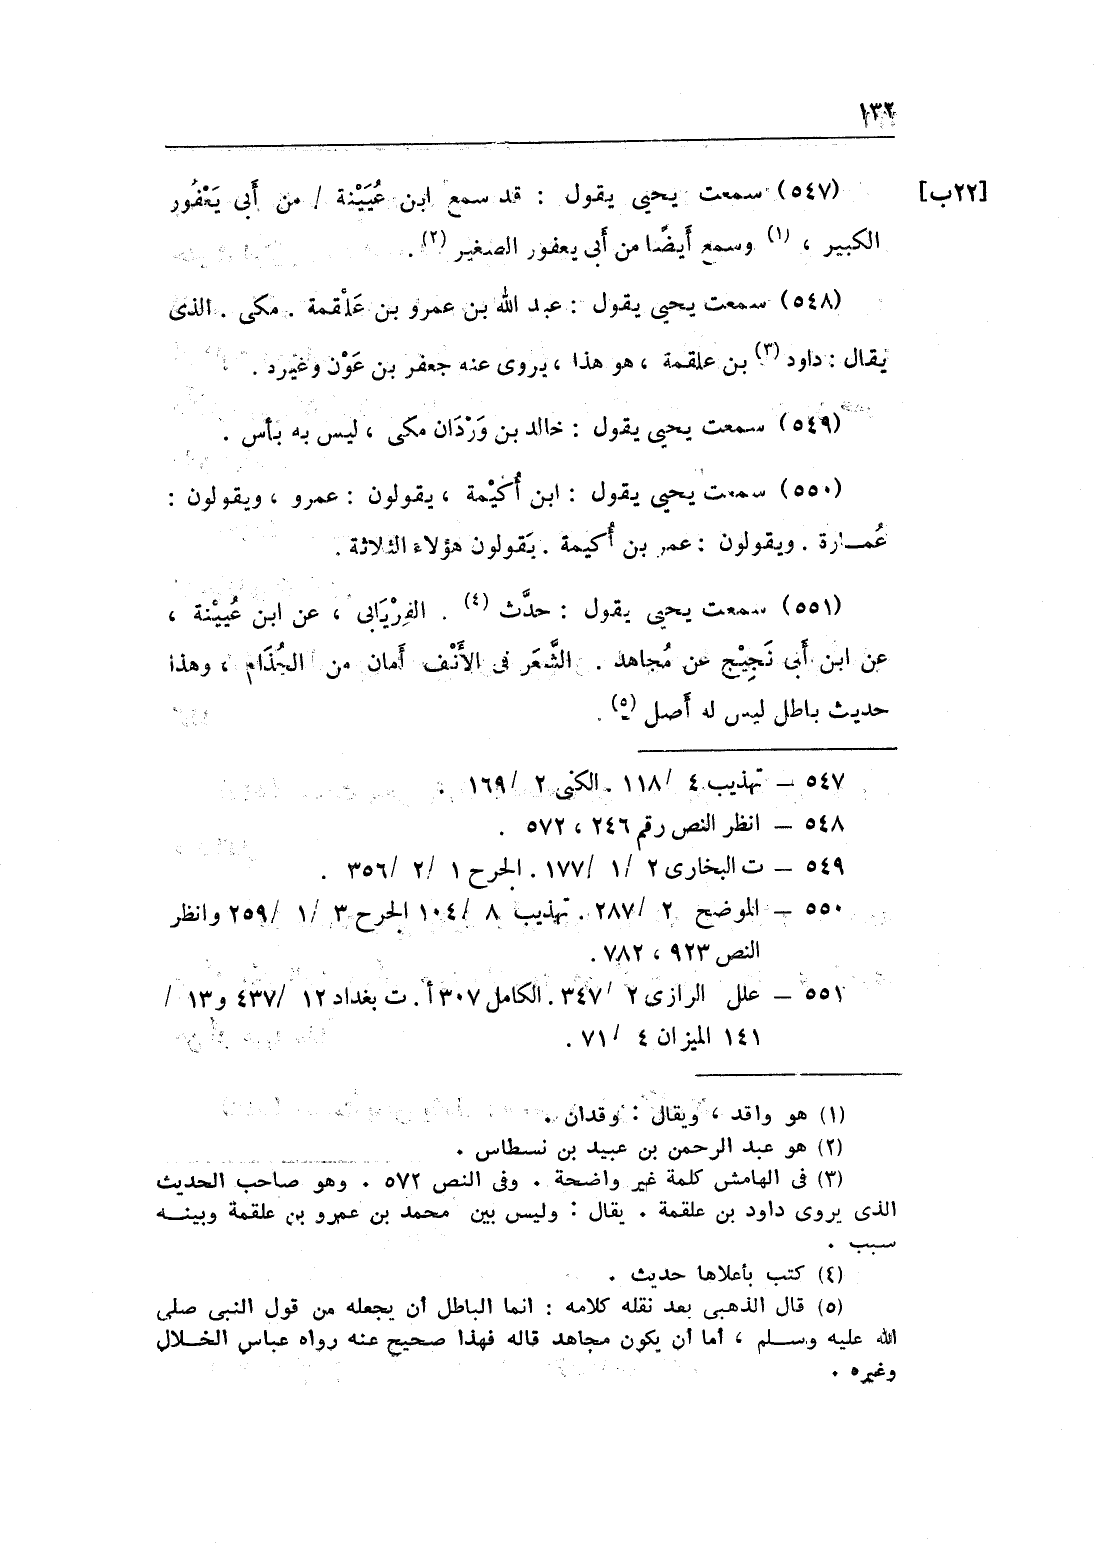 ١٣٢
[٢٢ب] (٥٤٧) سمعت يحيى يقول : قد سمع ابن عُيَيْنة / من أَبى يَعْفُور
الكبير ، (١) وسمع أَيضًا من أَبى يعفور الصغير (٢) .
(٥٤٨) سمعت يحيى يقول : عبد الله بن عمرو بن عَلْقمة . مكى . الذى
يقال : داود (٣) بن علقمة ، هو هذا ، يروى عنه جعفر بن عَوْن وغيره .
(٥٤٩) سمعت يحيى يقول : خالد بن وَرْدَان مكى ، ليس به بأس .
(٥٥٠) سمعت يحيى يقول : ابن أُكَيْمة ، يقولون : عمرو ، ويقولون :
عُمــارة . ويقولون : عمر بن أُكيمة . يَقولون هؤلاء الثلاثة .
(٥٥١) سمعت يحيى يقول : حدَّث (٤) . الفِرْيَابى ، عن ابن عُيَيْنة ،
عن ابن أَبى نَجِيْح عن مُجاهد . الشَّعَر فى الأَنْف أَمان من الجُذَام ، وهذا
حديث باطل ليس له أَصل (٥) .
٥٤٧ – تهذيب ٤ /١١٨ . الكنى ٢ /١٦٩ .
٥٤٨ – انظر النص رقم ٢٤٦ ، ٥٧٢ .
٥٤٩ – ت البخارى ٢ /١ /١٧٧ . الجرح ١ /٢ /٣٥٦ .
٥٥٠ – الموضح ٢ /٢٨٧ . تهذيب ٨ /١٠٤ الجرح ٣ /١ /٢٥٩ وانظر
النص ٩٢٣ ، ٧٨٢ .
٥٥١ – علل الرازى ٢ /٣٤٧ . الكامل ٣٠٧ أ . ت بغداد ١٢ /٤٣٧ و ١٣ /
١٤١ الميزان ٤ /٧١ .
(١) هو واقد ، ويقال : وقدان .
(٢) هو عبد الرحمن بن عبيد بن نسطاس .
(٣) فى الهامش كلمة غير واضحة . وفى النص ٥٧٢ . وهو صاحب الحديث
الذى يروى داود بن علقمة . يقال : وليس بين محمد بن عمرو بن علقمة وبينــه
سبب .
(٤) كتب بأعلاها حديث .
(٥) قال الذهبى بعد نقله كلامه : انما الباطل أن يجعله من قول النبى صلى
الله عليه وســلم ، أما أن يكون مجاهد قاله فهذا صحيح عنه رواه عباس الخــلال
وغيره .